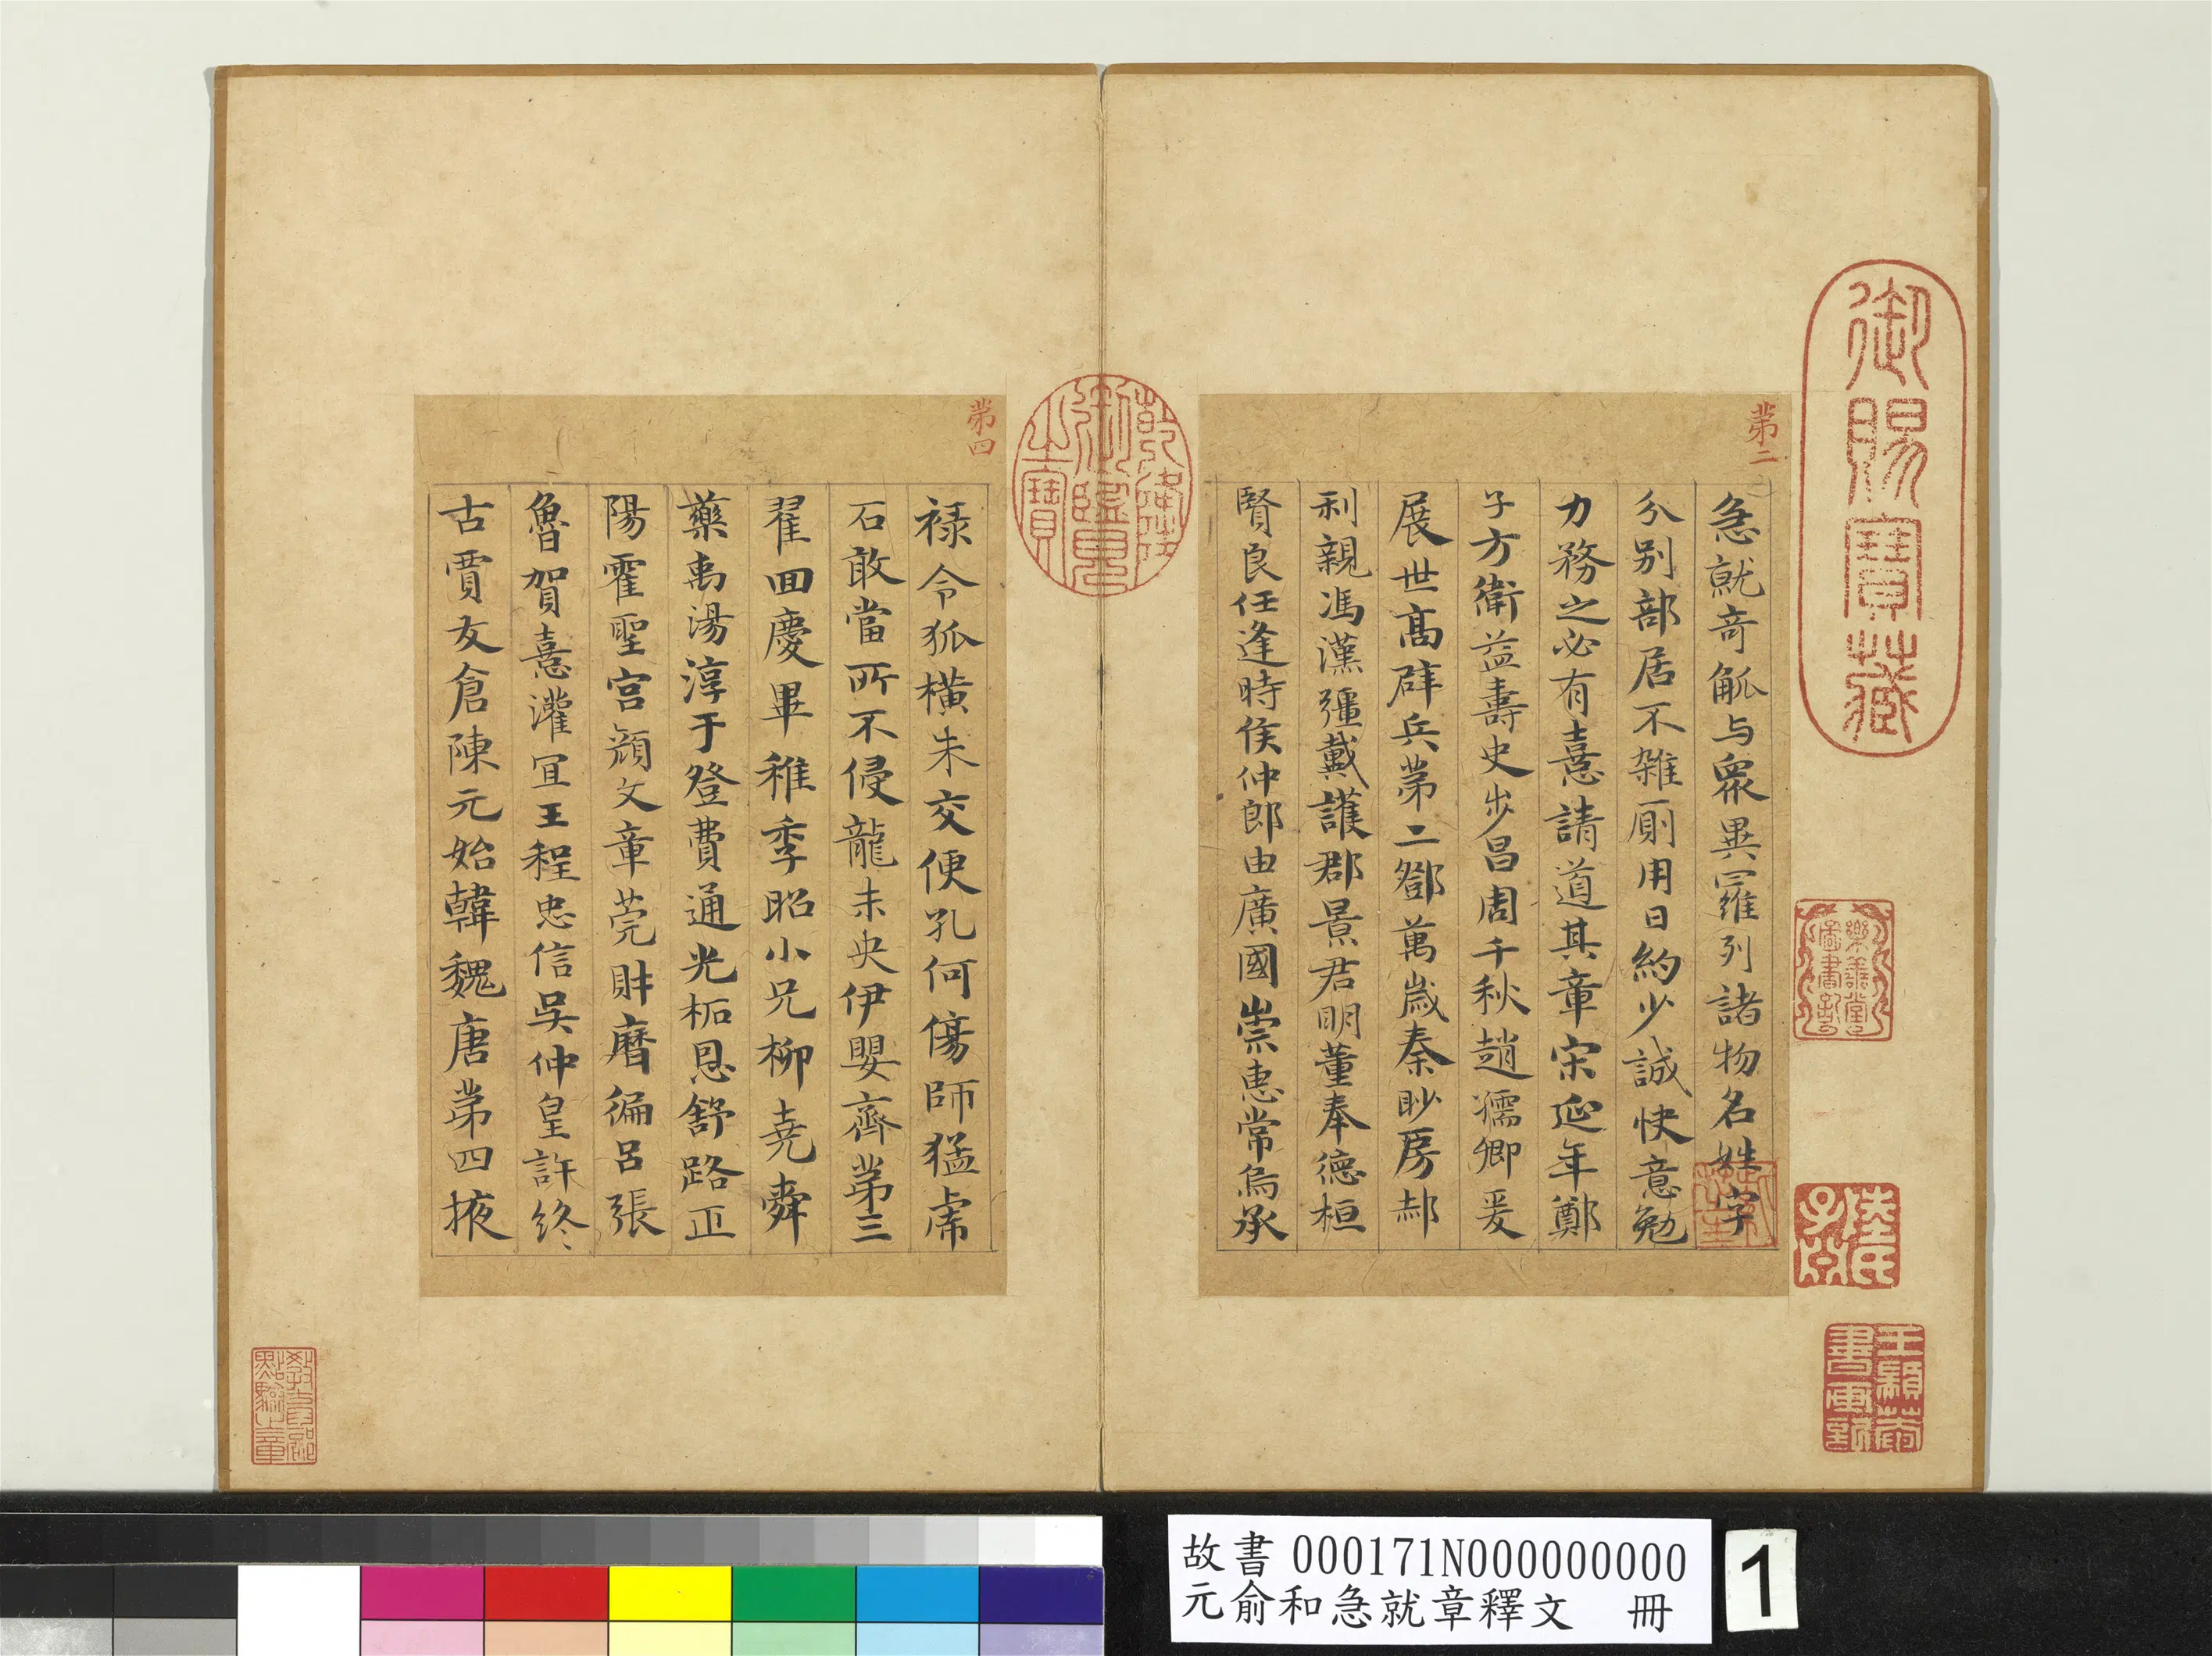 御賜寶藏
第二
急就奇觚与衆異羅列諸物名姓字
分別部居不雜厠用日約少誠快意勉
力務之必有憙請道其章宋延年鄭
子方衛益壽史步昌周千秋趙孺卿爰
展世高辟兵第二鄧萬歲秦眇房郝
利親馮漢彊戴護郡景君明董奉德桓
賢良任逢時侯仲郎由廣國崇惠常烏承
乾隆御覽之寶
第四
祿令狐橫朱交便孔何傷師猛虎
石敢當所不侵龍未央伊嬰齊第三
翟回慶畢稚季昭小兄柳堯舜
藥禹湯淳于登費通光柘恩舒路正
陽霍聖宮顏文章莞財曆徧呂張
魯賀憙灌宜王程忠信吳仲皇許終
古賈友倉陳元始韓魏唐第四掖
樂善堂圖書記
陸氏子公
王穎菴書画記
故書 000171N000000000
元俞和急就章釋文 冊
1